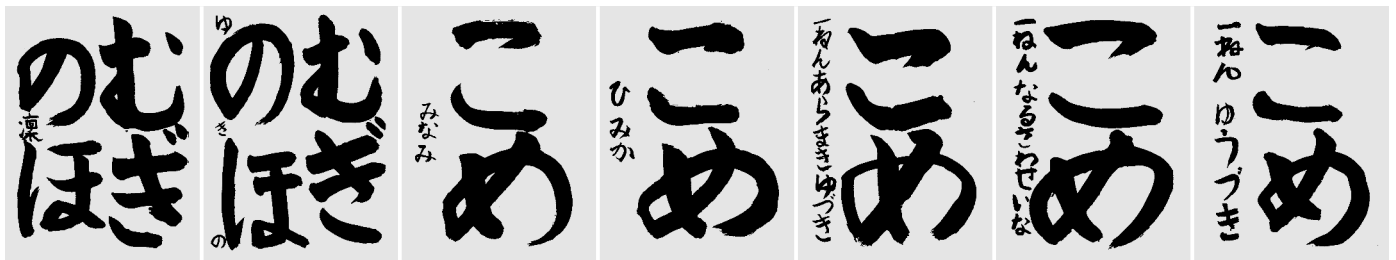 むぎ
のほ
凛
むぎ
のほ
ゆきの
こめ
みなみ
こめ
ひみか
こめ
一ねんあらまきゆづき
こめ
一ねんなるさわせいな
こめ
一ねん ゆうづき